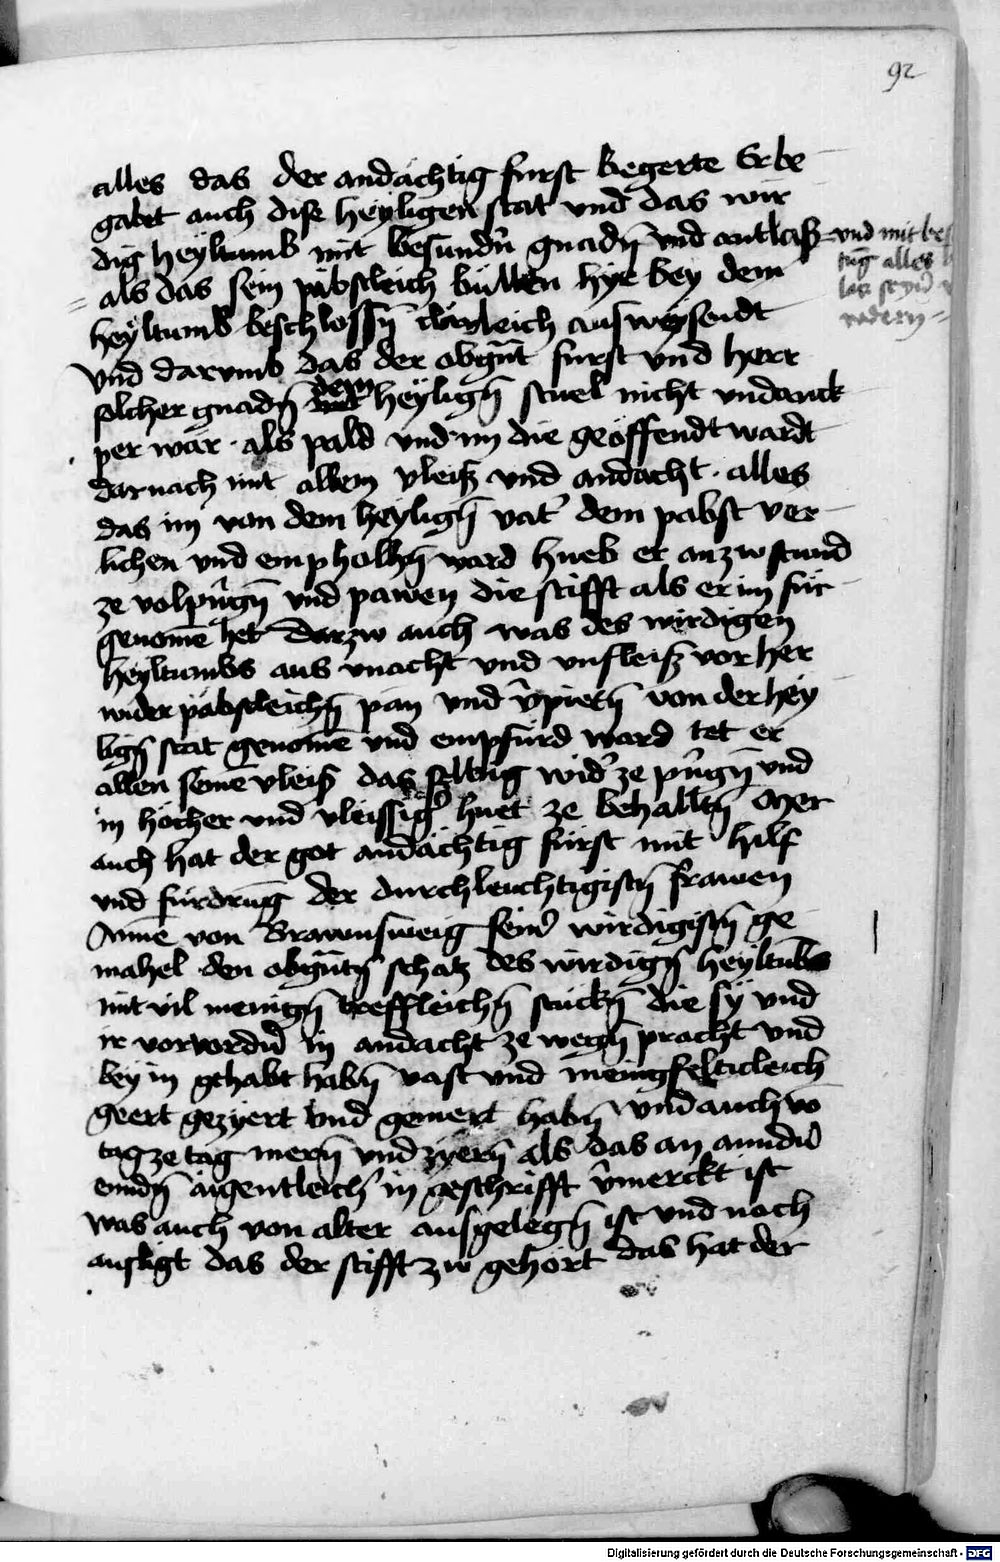 92
alles das der andächtig fürst begerte Er be
gabet auch dise heyligen stat und das wir
dig heyltumb mit besundn̄ gnadn̄ vnd antlas vnd mit bes
tūg alles
als das sein päbstleich bullen hye bey dem
heyltumb beschlossn̄ clärleich ausweysendt
vnd darvmb das der obgn̄t fürst vnd herr
solcher gnadn̄ dem heylign̄ stuel nicht vndanck
per wär · als pald vnd im die geöffendt wardt
darnach mit allem vleiß vnd andacht · alles
das im von dem heylign̄ vat' dem pabst ver
lichen vnd empholhn̄ ward hueb er anzw stund
ze volpringn̄ vnd pawen die stifft als er im für
genomē het darzw auch was des wirdigen
heyltumbs aus vnacht vnd vnfleiß vor her
wider päbstleichn̄ pan vnd v̄pietn̄ von der hey
lign̄ stat genomē vnd empfürd ward tet er
allen seinē vleiß das selbig wid' ze pringn̄ vnd
in hocher vnd vleissig' huet ze behaltn̄ Mer
auch hat der got andächtig fürst mit hilf
vnd fürdrūg der durchleuchtigistn̄ frawen
Annē von Brawnsweig sein' wirdigistn̄ ge
mahel den obgn̄tn̄ schatz des wirdign̄ heyltūbs
mit vil menign̄ treffleichn̄ stuckn̄ die sy vnd
ir vorvordn̄ in andacht ze wegn̄ pracht vnd
bey in gehabt habn̄ vast vnd menigfelticleich
geert gezyert vnd gemert habn̄ vnd auch vō
tag ze tag mern̄ vnd zyern̄ als das an anndn̄
enndn̄ aigentleich in geschrifft v̄merckt ist
was auch von alter ausgelegn̄ ist vnd noch
ausligt das der stifft zw gehört das hat der
Digitalisierung gefördert durch die Deutsche Forschungsgemeinschaft - DFG